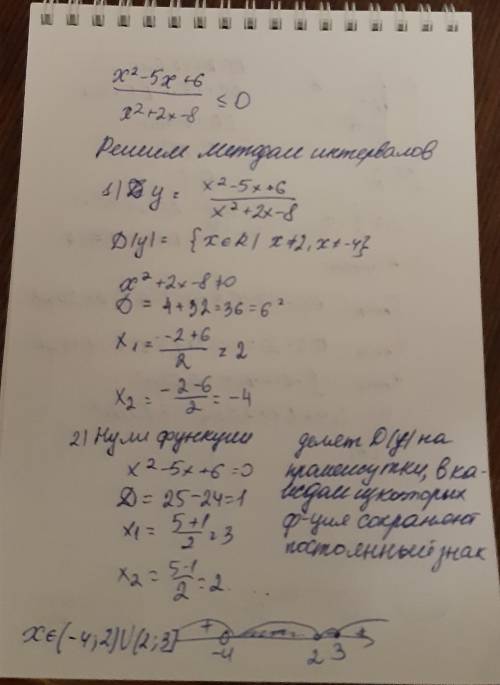 x²-5x+6 / x²+2x-8 ≤ 0
Решим методом интервалов
1) y = x²-5x+6 / x²+2x-8
D(y) = {x∈R | x≠2, x≠-4}
x²+2x-8≠0
D = 4+32=36=6²
x₁ = -2+6 / 2 = 2
x₂ = -2-6 / 2 = -4
2) Нули функции
x²-5x+6=0
D = 25-24=1
x₁ = 5+1 / 2 = 3
x₂ = 5-1 / 2 = 2
делят D(y) на
промежутки, в ка-
ждом из которых
ф-ция сохраняет
постоянный знак
x∈(-4;2)∪(2;3]
+ - +
-4 2 3